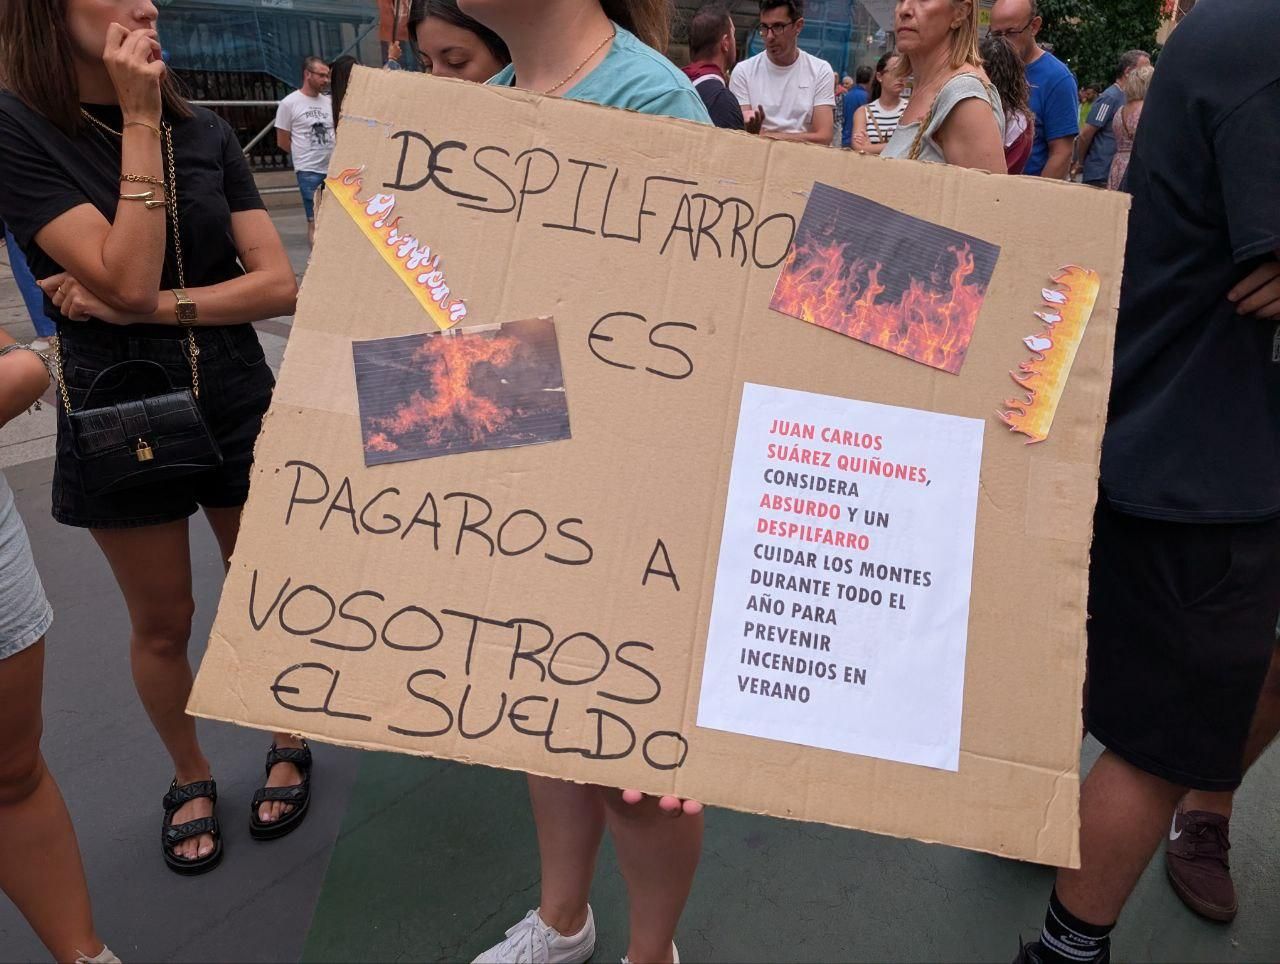 DESPILFARRO
ES
PAGAROS A
VOSOTROS
EL SUELDO
JUAN CARLOS
SUÁREZ QUIÑONES,
CONSIDERA
ABSURDO Y UN
DESPILFARRO
CUIDAR LOS MONTES
DURANTE TODO EL
AÑO PARA
PREVENIR
INCENDIOS EN
VERANO